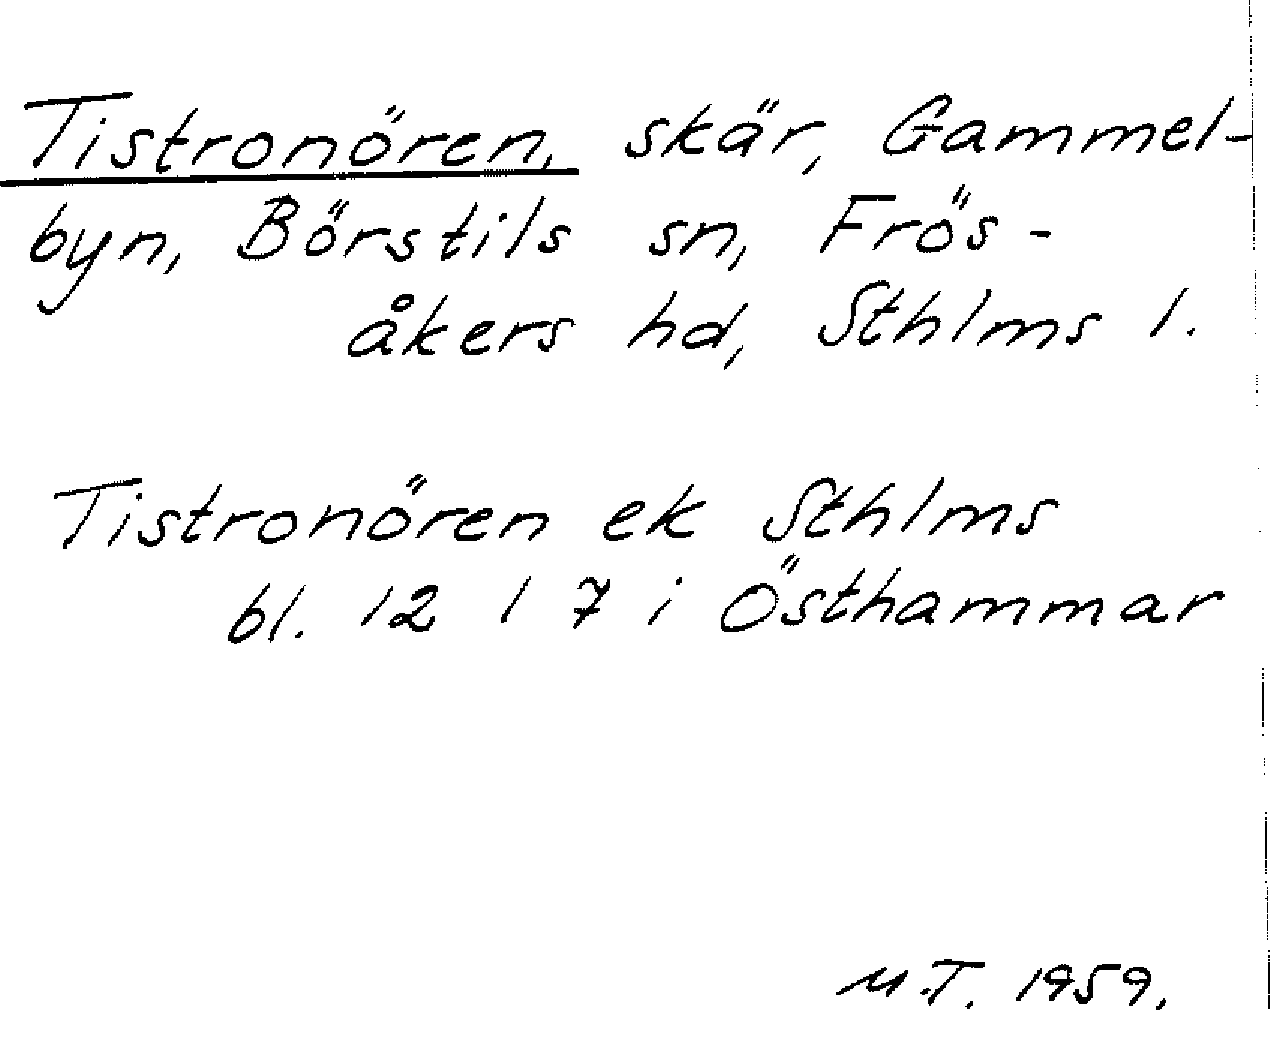 Tistronören, skär, Gammel-
byn, Börstils sn, Frös-
åkers hd, Sthlms l.
Tistronören ek Sthlms
bl. 12 1 7 i Östhammar
M.T. 1959.